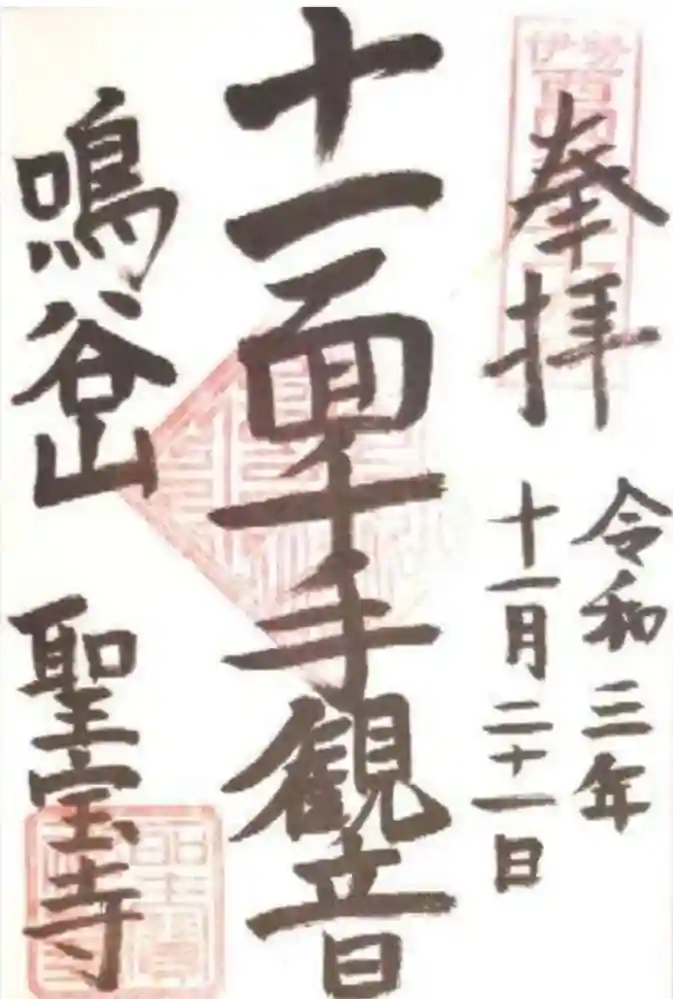 伊勢西国
奉拝
令和三年
十一月二十一日
十一面千手観音
鳴谷山
聖宝寺